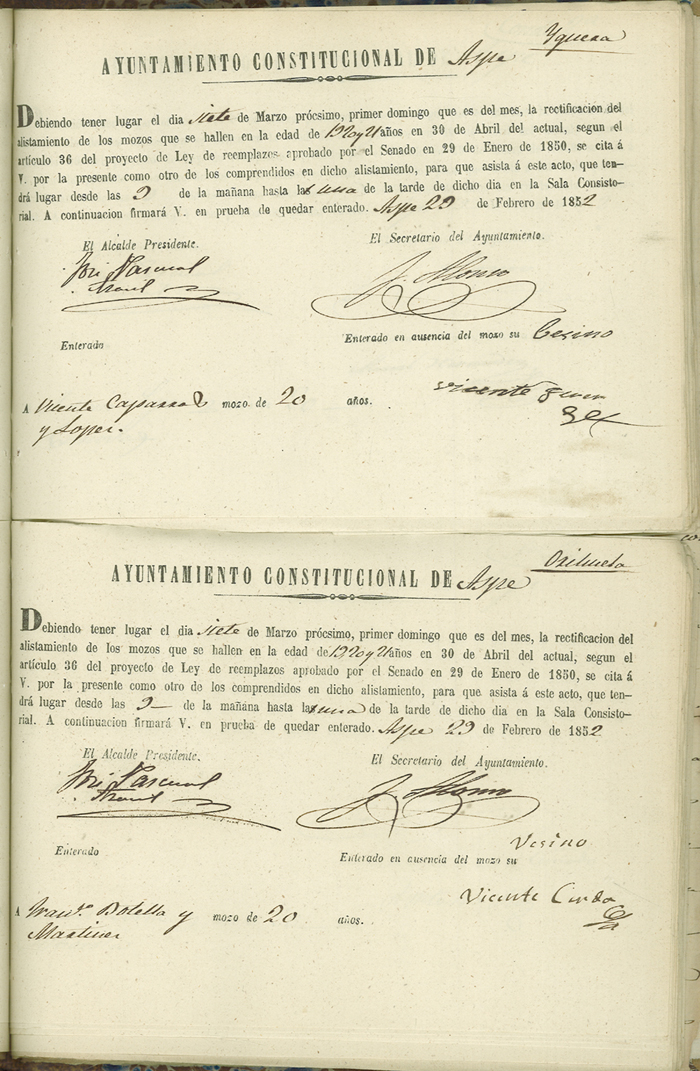 Yguera
AYUNTAMIENTO CONSTITUCIONAL DE Aspe
Debiendo tener lugar el dia siete de Marzo prócsimo, primer domingo que es del mes, la rectificacion del
alistamiento de los mozos que se hallen en la edad de 19 20 y 21 años en 30 de Abril del actual, segun el
artículo 36 del proyecto de Ley de reemplazos aprobado por el Senado en 29 de Enero de 1850, se cita á
V. por la presente como otro de los comprendidos en dicho alistamiento, para que asista á este acto, que ten-
drá lugar desde las 9 de la mañana hasta la una de la tarde de dicho dia en la Sala Consisto-
rial. A continuacion firmará V. en prueba de quedar enterado. Aspe 29 de Febrero de 1852
El Alcalde Presidente. El Secretario del Ayuntamiento.
José Pascual J. Alonso
Enterado Enterado en ausencia del mozo su Becino
A Vicente Caparros mozo de 20 años. Vicente
y Lopez.
Orihuela
AYUNTAMIENTO CONSTITUCIONAL DE Aspe
Debiendo tener lugar el dia siete de Marzo prócsimo, primer domingo que es del mes, la rectificacion del
alistamiento de los mozos que se hallen en la edad de 19 20 y 21 años en 30 de Abril del actual, segun el
artículo 36 del proyecto de Ley de reemplazos aprobado por el Senado en 29 de Enero de 1850, se cita á
V. por la presente como otro de los comprendidos en dicho alistamiento, para que asista á este acto, que ten-
drá lugar desde las 9 de la mañana hasta la una de la tarde de dicho dia en la Sala Consisto-
rial. A continuacion firmará V. en prueba de quedar enterado. Aspe 29 de Febrero de 1852
El Alcalde Presidente. El Secretario del Ayuntamiento.
José Pascual J. Alonso
Enterado Enterado en ausencia del mozo su Vesino
A Franco. Botella y mozo de 20 años. Vicente Cerda
Martinez